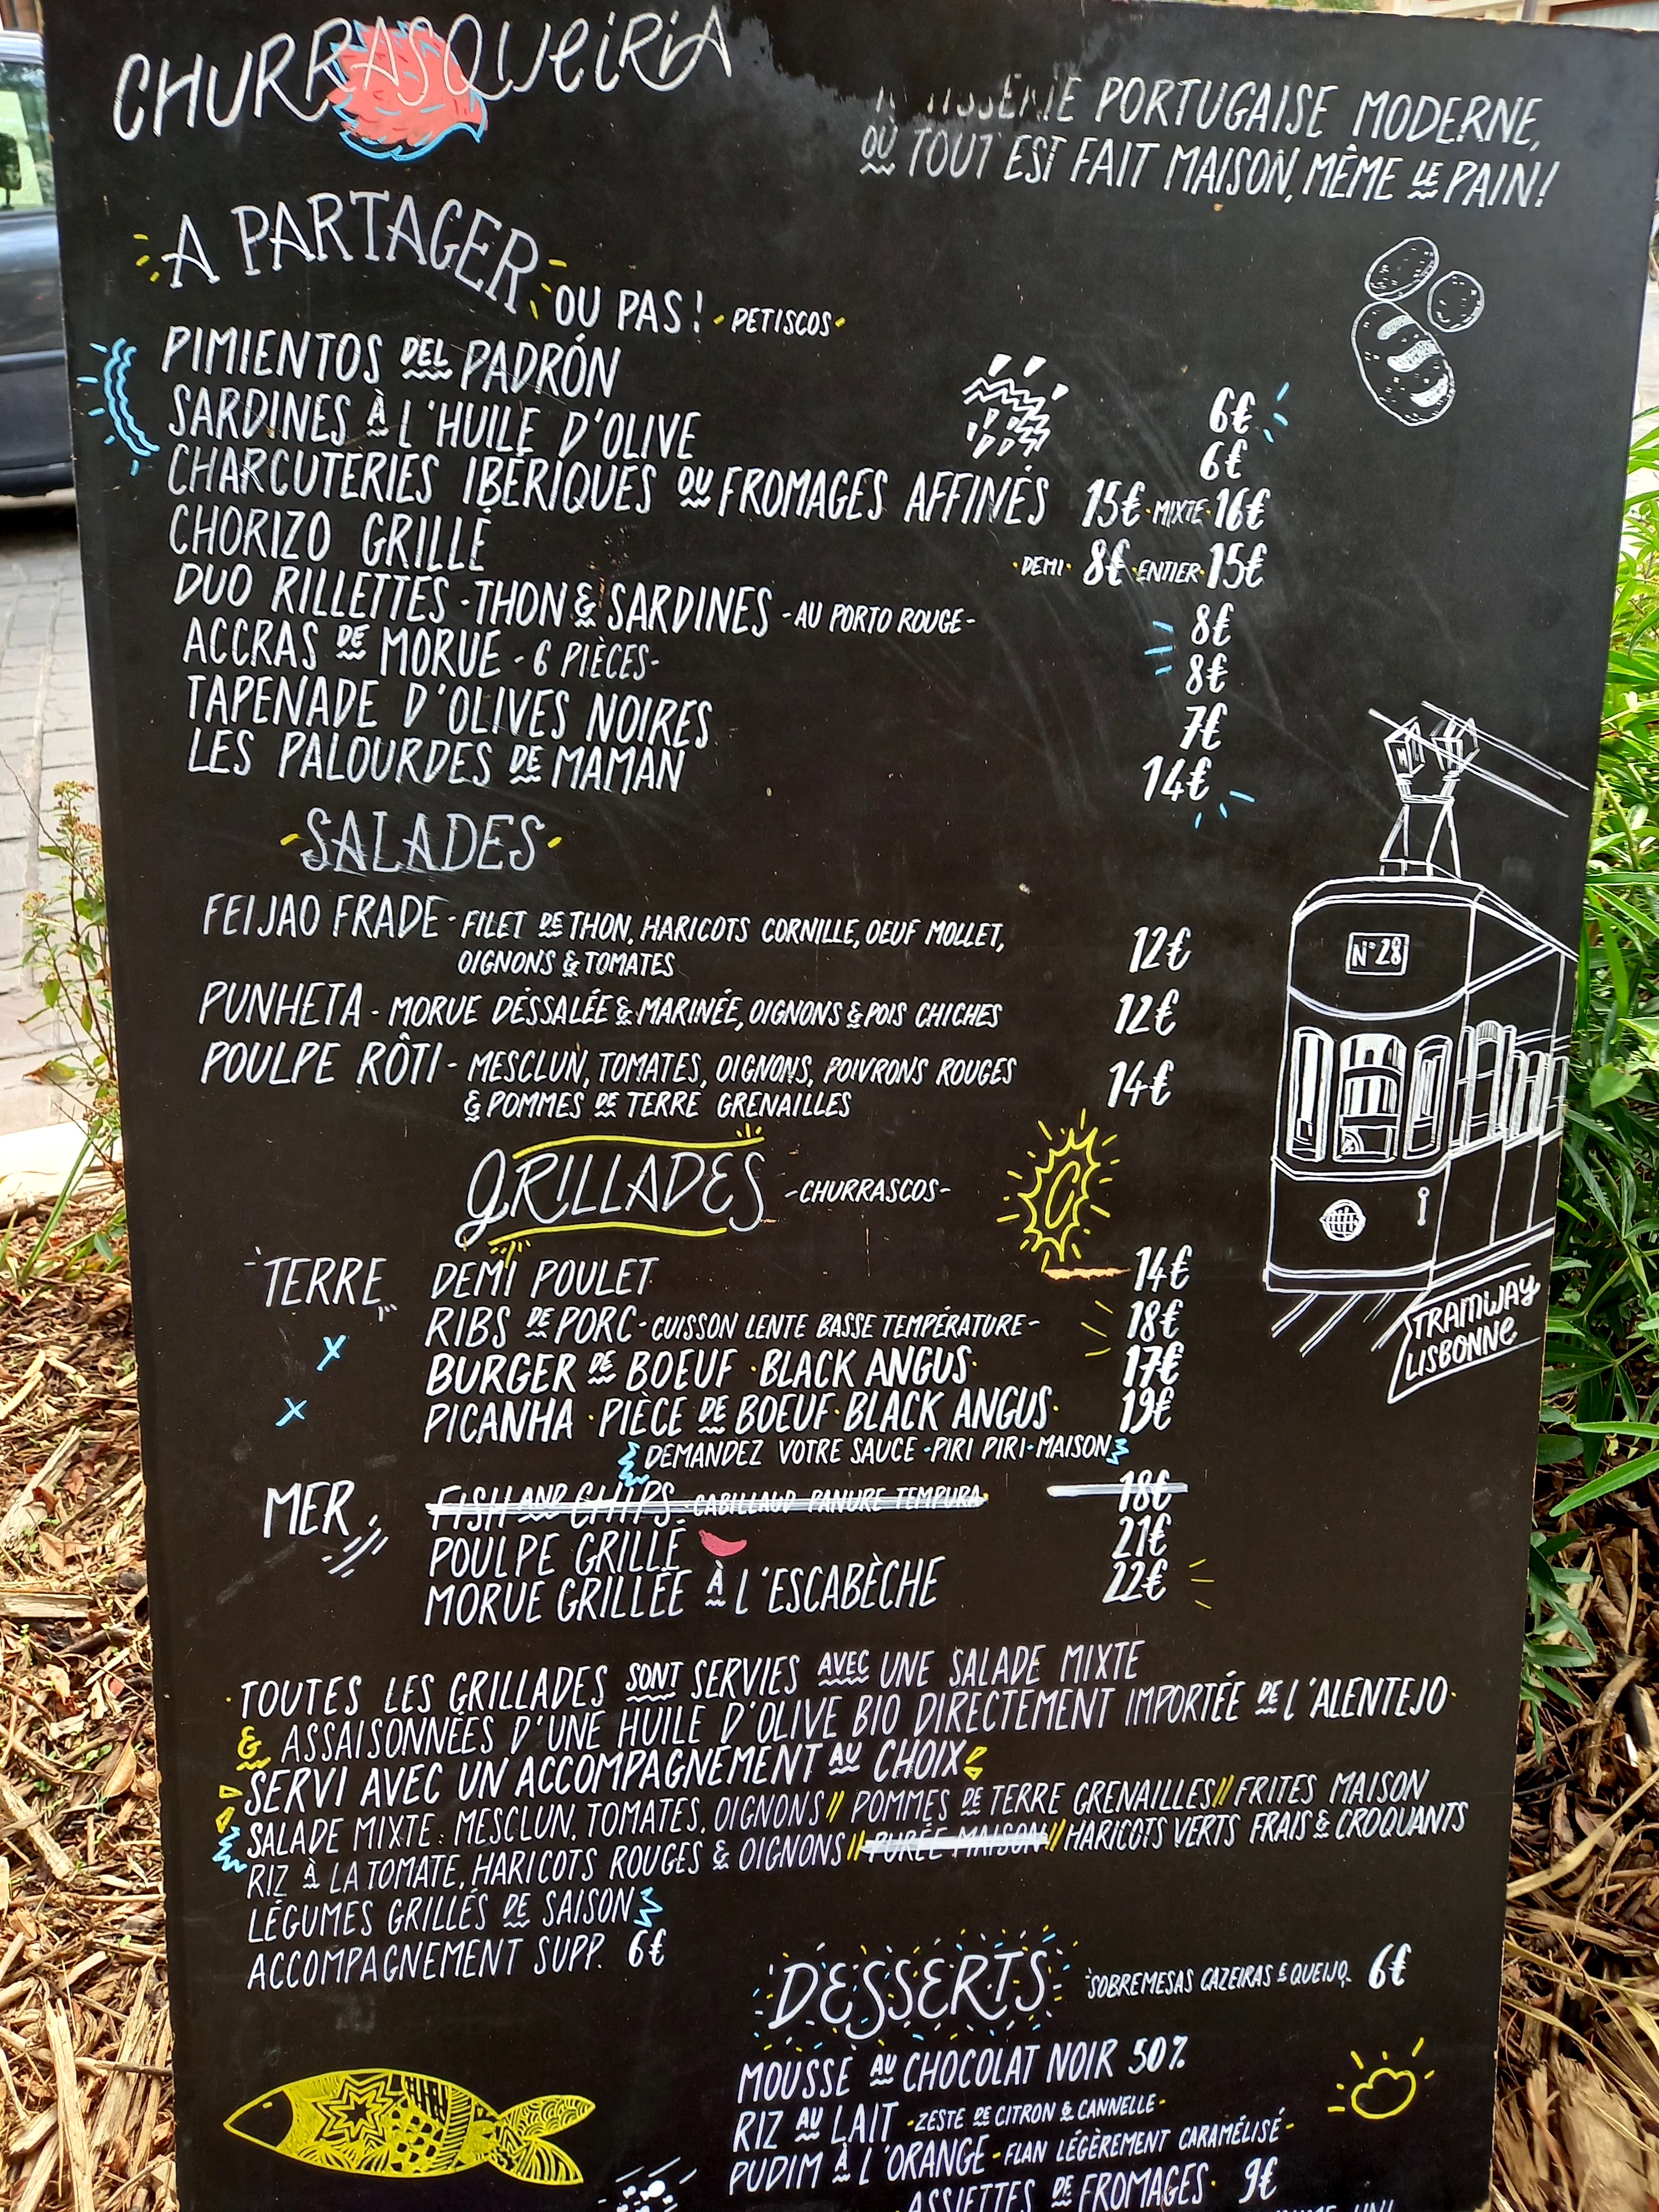 CHURRASQUEIRIA
PORTUGAISE MODERNE,
OÙ TOUT EST FAIT MAISON, MÊME LE PAIN!
A PARTAGER OU PAS! · PETISCOS ·
PIMIENTOS DEL PADRÓN 6€
SARDINES À L'HUILE D'OLIVE 6€
CHARCUTERIES IBÉRIQUES OU FROMAGES AFFINÉS 15€ · MIXTE · 16€
CHORIZO GRILLÉ · DEMI · 8€ · ENTIER · 15€
DUO RILLETTES - THON & SARDINES - AU PORTO ROUGE - 8€
ACCRAS DE MORUE - 6 PIÈCES - 8€
TAPENADE D'OLIVES NOIRES 7€
LES PALOURDES DE MAMAN 14€
· SALADES ·
FEIJAO FRADE - FILET DE THON, HARICOTS CORNILLE, OEUF MOLLET, 12€
OIGNONS & TOMATES
PUNHETA - MORUE DÉSSALÉE & MARINÉE, OIGNONS & POIS CHICHES 12€
POULPE RÔTI - MESCLUN, TOMATES, OIGNONS, POIVRONS ROUGES 14€
& POMMES DE TERRE GRENAILLES
GRILLADES - CHURRASCOS - C
TERRE DEMI POULET 14€
RIBS DE PORC - CUISSON LENTE BASSE TEMPÉRATURE - 18€
BURGER DE BOEUF · BLACK ANGUS · 17€
PICANHA · PIÈCE DE BOEUF · BLACK ANGUS · 19€
DEMANDEZ VOTRE SAUCE · PIRI PIRI · MAISON
MER FISH AND CHIPS · CABILLAUD PANURE TEMPURA · 18€
POULPE GRILLÉ 21€
MORUE GRILLÉE À L'ESCABÈCHE 22€
N°28
TRAMWAY
LISBONNE
· TOUTES LES GRILLADES SONT SERVIES AVEC UNE SALADE MIXTE
& ASSAISONNÉES D'UNE HUILE D'OLIVE BIO DIRECTEMENT IMPORTÉE DE L'ALENTEJO ·
SERVI AVEC UN ACCOMPAGNEMENT AU CHOIX
SALADE MIXTE: MESCLUN, TOMATES, OIGNONS // POMMES DE TERRE GRENAILLES // FRITES MAISON
RIZ À LA TOMATE, HARICOTS ROUGES & OIGNONS // PURÉE MAISON // HARICOTS VERTS FRAIS & CROQUANTS
LÉGUMES GRILLÉS DE SAISON
ACCOMPAGNEMENT SUPP. 6€
DESSERTS SOBREMESAS CAZEIRAS & QUEIJO 6€
MOUSSE AU CHOCOLAT NOIR 50%
RIZ AU LAIT - ZESTE DE CITRON & CANNELLE -
PUDIM À L'ORANGE - FLAN LÉGÈREMENT CARAMÉLISÉ -
ASSIETTES DE FROMAGES · 9€